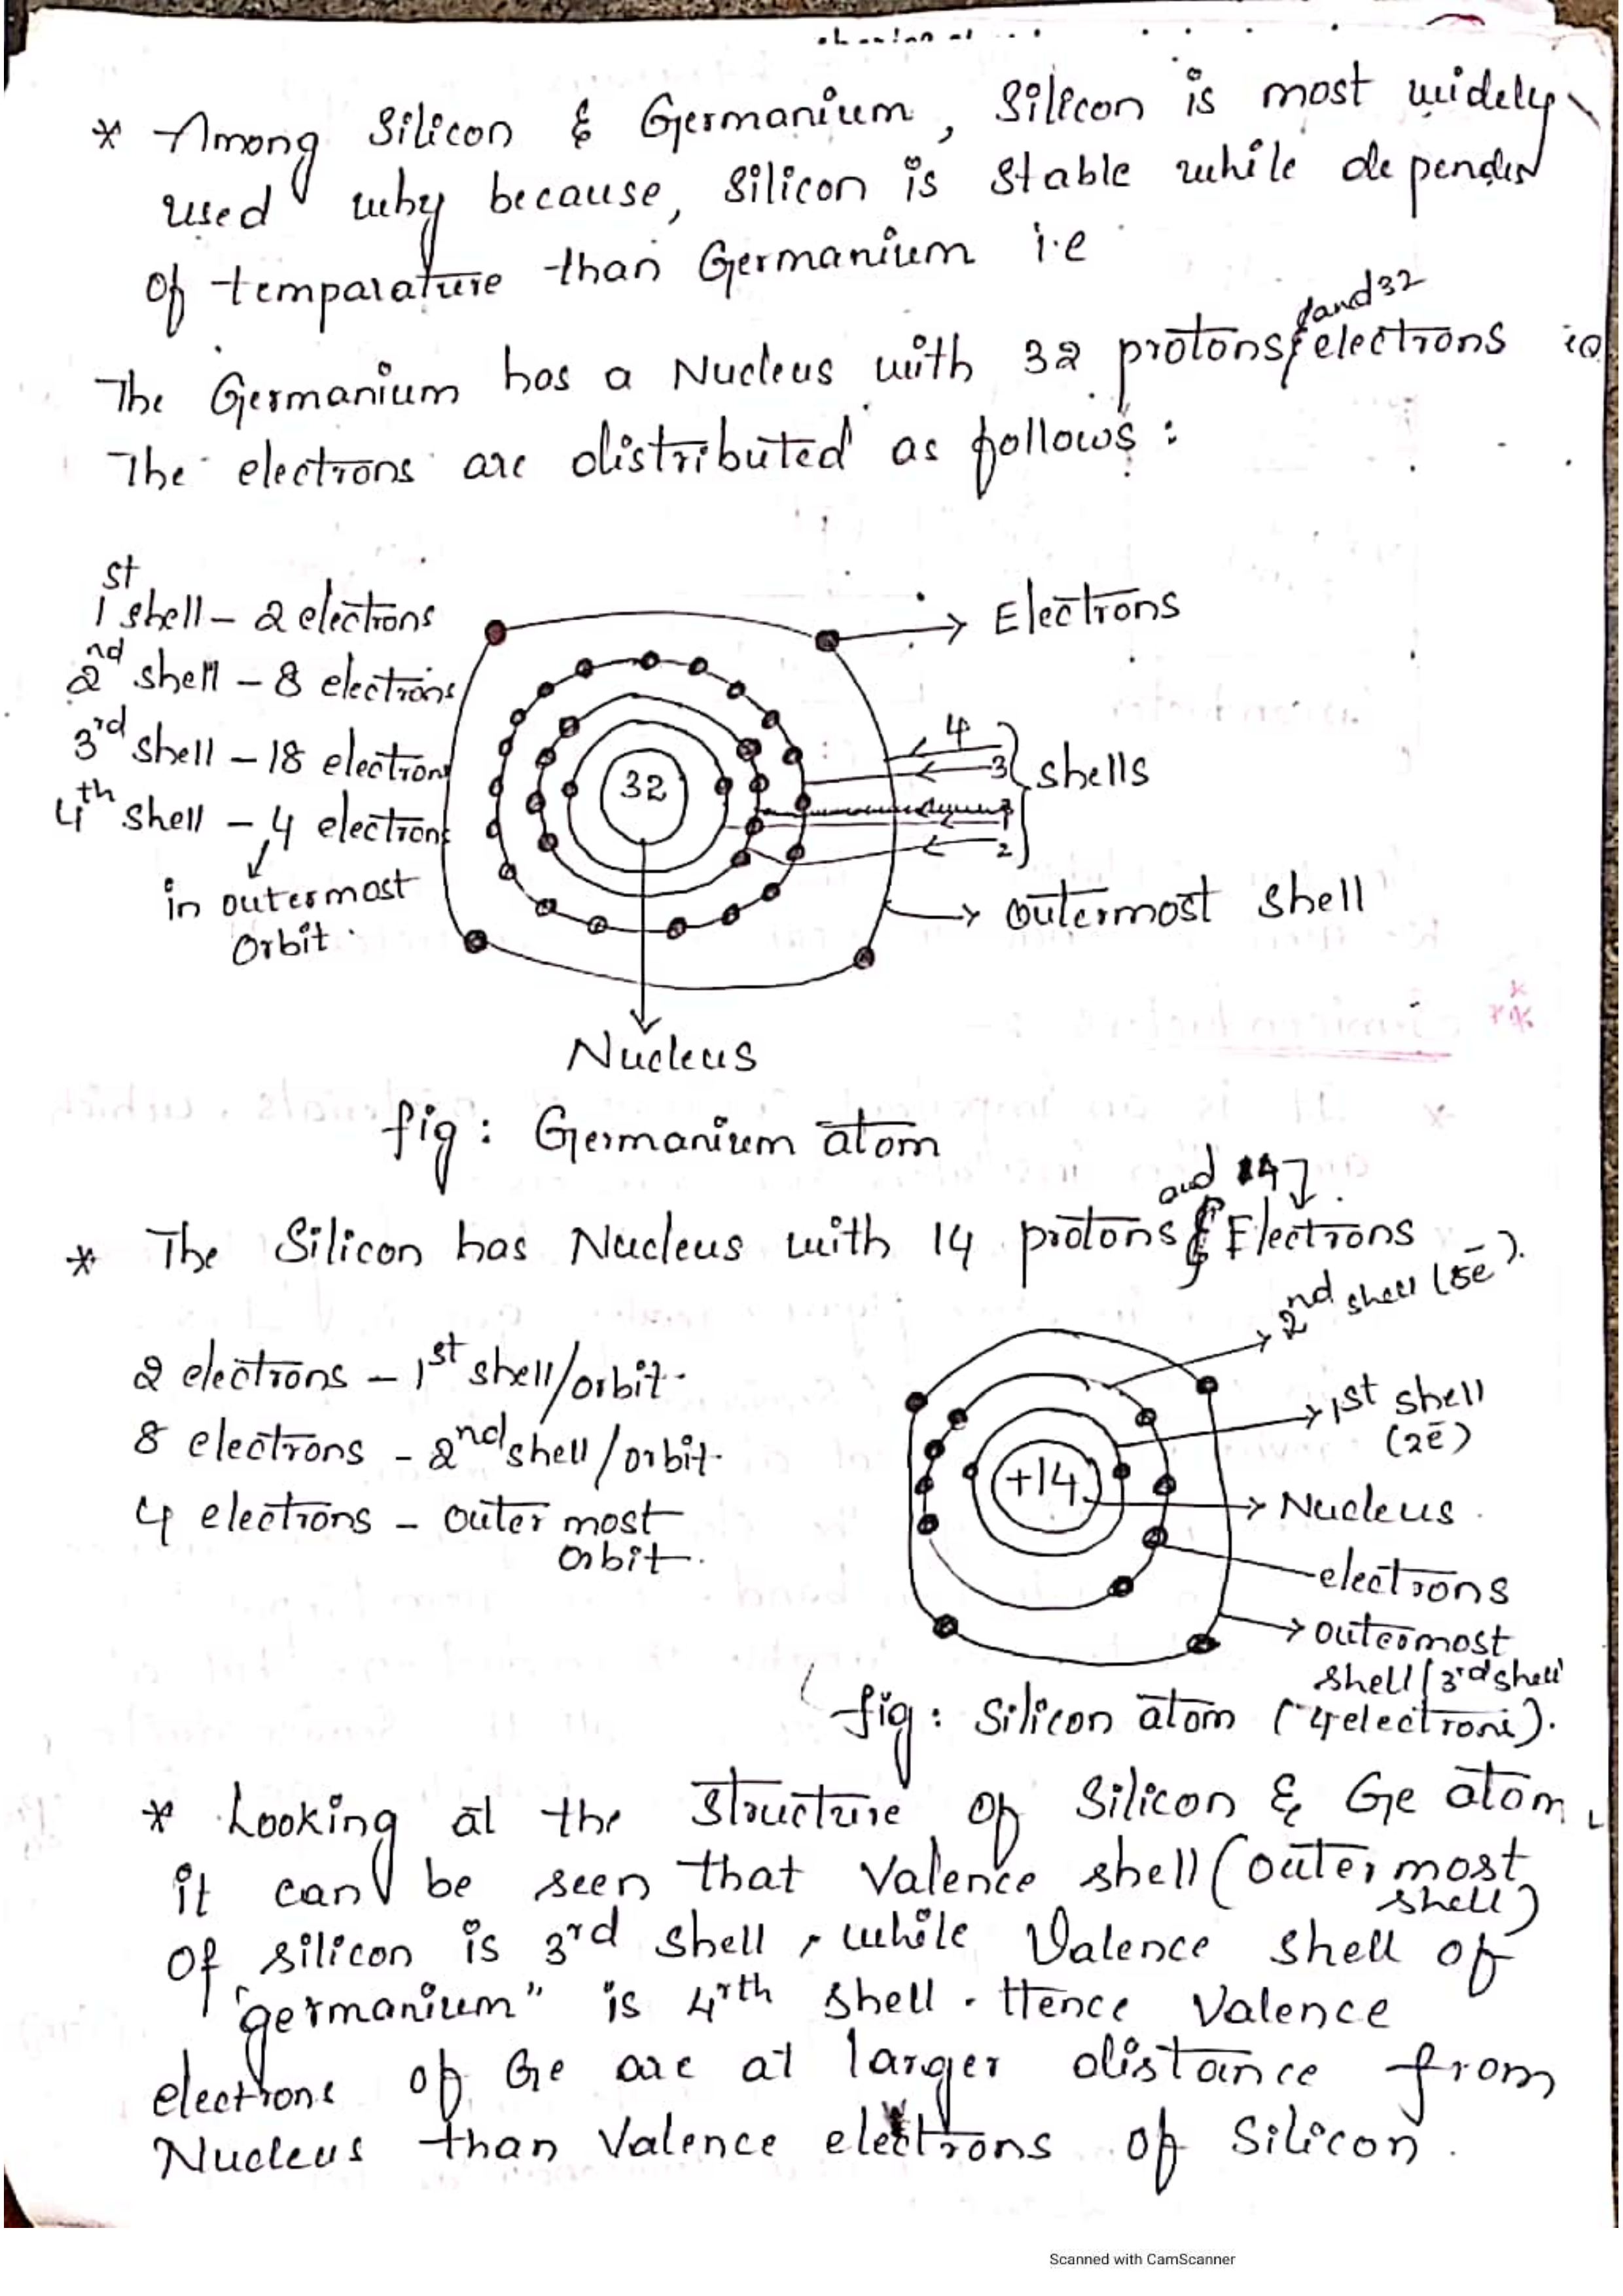 * Among Silicon & Germanium, Silicon is most widely
used why because, silicon is stable while dependin
of temparature than Germanium i.e
and 32
The Germanium has a Nucleus with 32 protons electrons
The electrons are distributed as follows :
1st shell - 2 electrons
2nd shell - 8 electrons
3rd shell - 18 electrons
4th shell - 4 electrons
in outermost
orbit.
32
Electrons
4
3
1
2
shells
outermost shell
Nucleus
fig : Germanium atom
and 14
* The Silicon has Nucleus with 14 protons & Electrons
2 electrons - 1st shell/orbit.
8 electrons - 2nd shell/orbit.
4 electrons - outer most
orbit.
+14
2nd shell (8e-).
1st shell
(2e-)
Nucleus
electrons
outermost
shell/3rd shell
fig : Silicon atom (4 electrons).
* Looking at the structure of silicon & Ge atom,
it can be seen that valence shell (outer most
shell)
of silicon is 3rd shell, while Valence shell of
"germanium" is 4rth shell. Hence Valence
electrons of Ge are at larger distance from
Nucleus than Valence electrons of Silicon.
Scanned with CamScanner